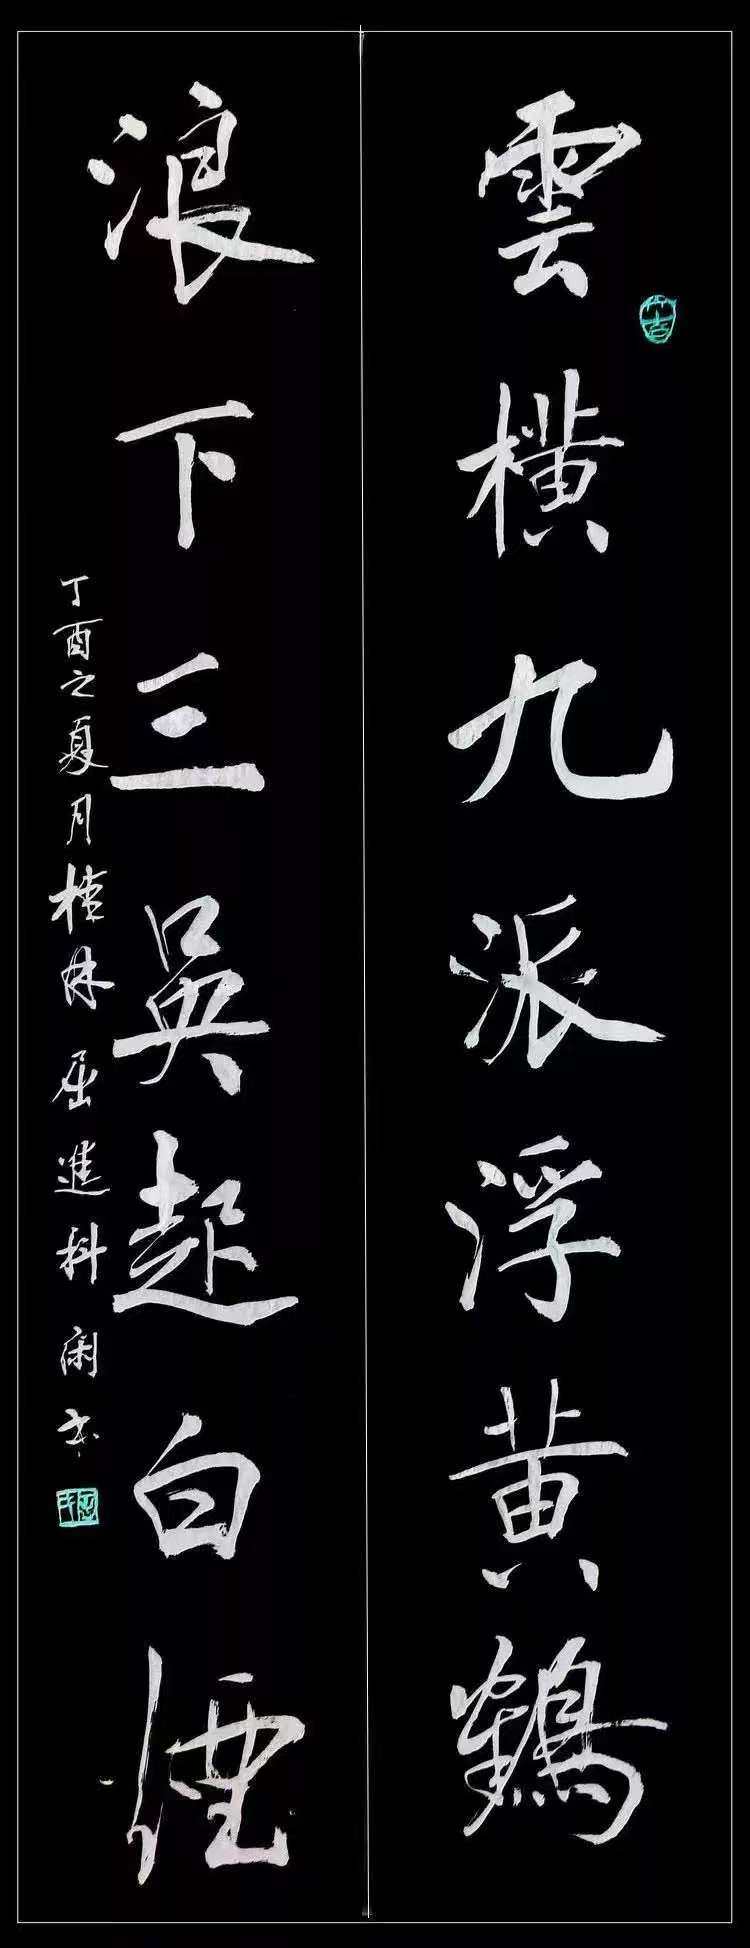 雲橫九派浮黄鶴
浪下三吳起白煙
丁酉之夏月桂林屈進科闲书